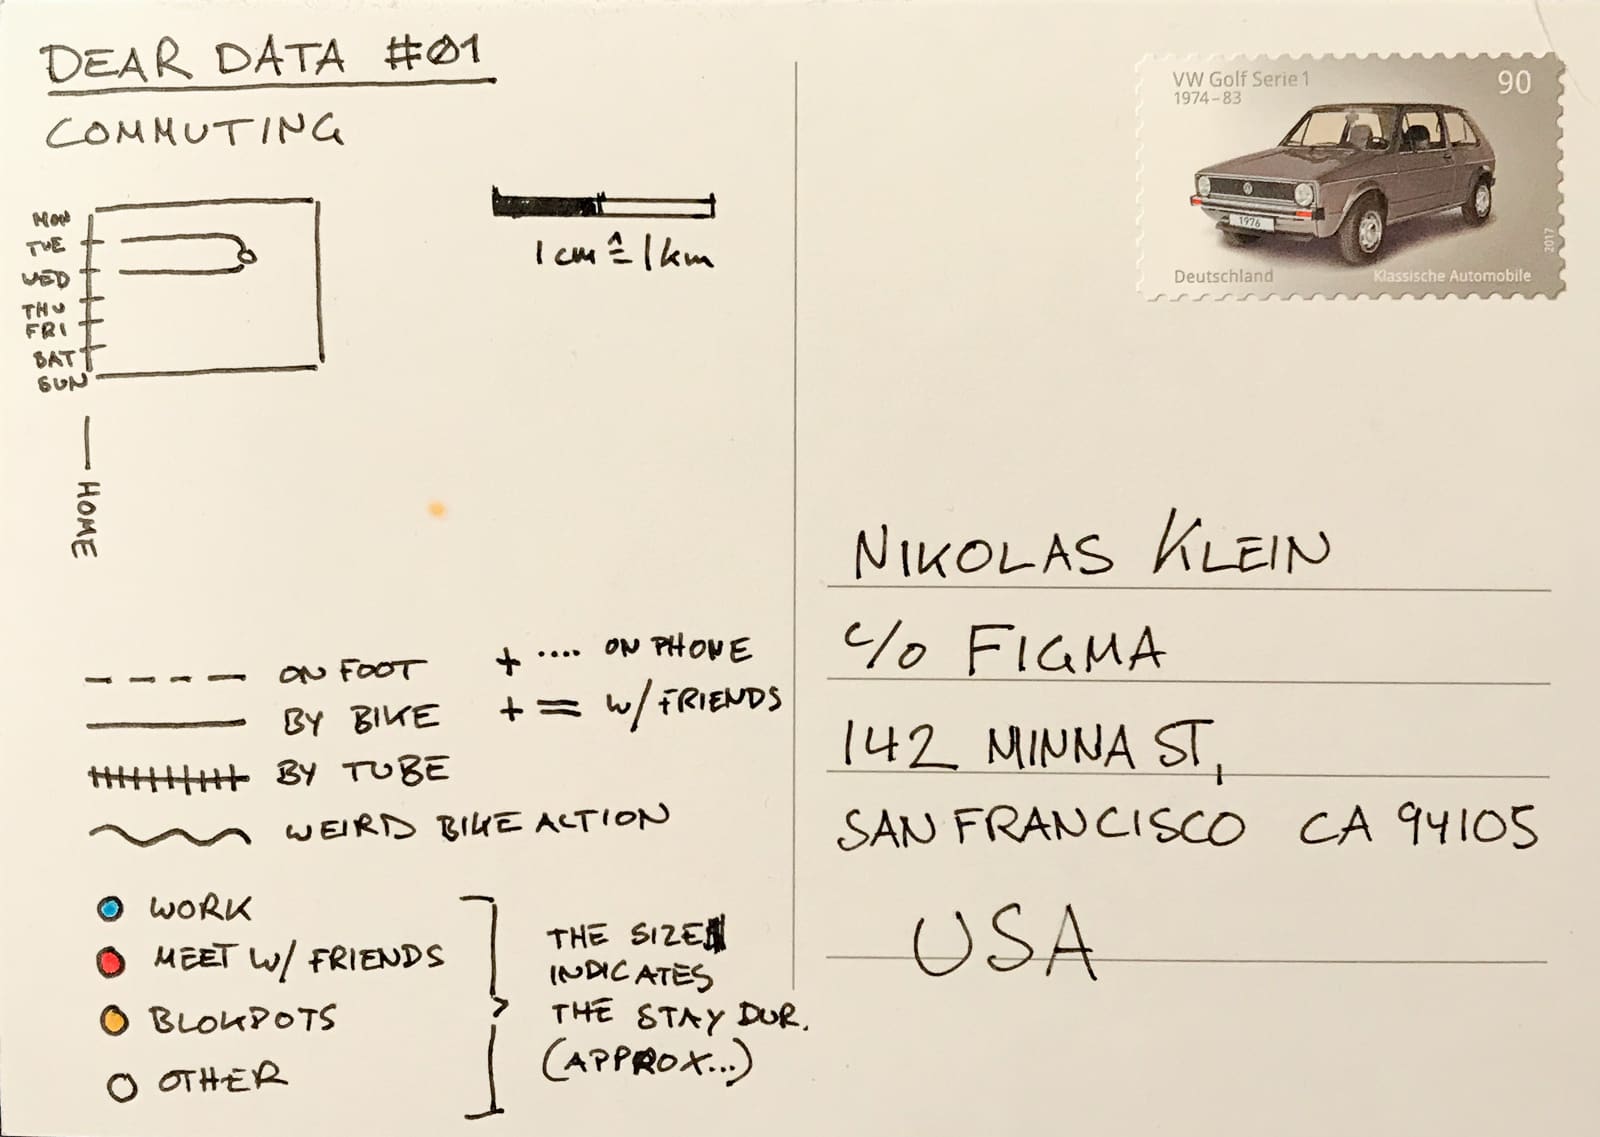 DEAR DATA #01
COMMUTING
MON
TUE
WED
THU
FRI
SAT
SUN
HOME
1 cm ≙ 1 km
--- ON FOOT
BY BIKE
BY TUBE
WEIRD BIKE ACTION
+ .... ON PHONE
+ = W/ FRIENDS
WORK
MEET W/ FRIENDS
OTHER
THE SIZE
INDICATES
THE STAY DUR.
(APPROX...)
VW Golf Serie 1
1974–83
90
1976
2017
Deutschland
Klassische Automobile
NIKOLAS KLEIN
C/O FIGMA
142 MINNA ST,
SAN FRANCISCO CA 94105
USA